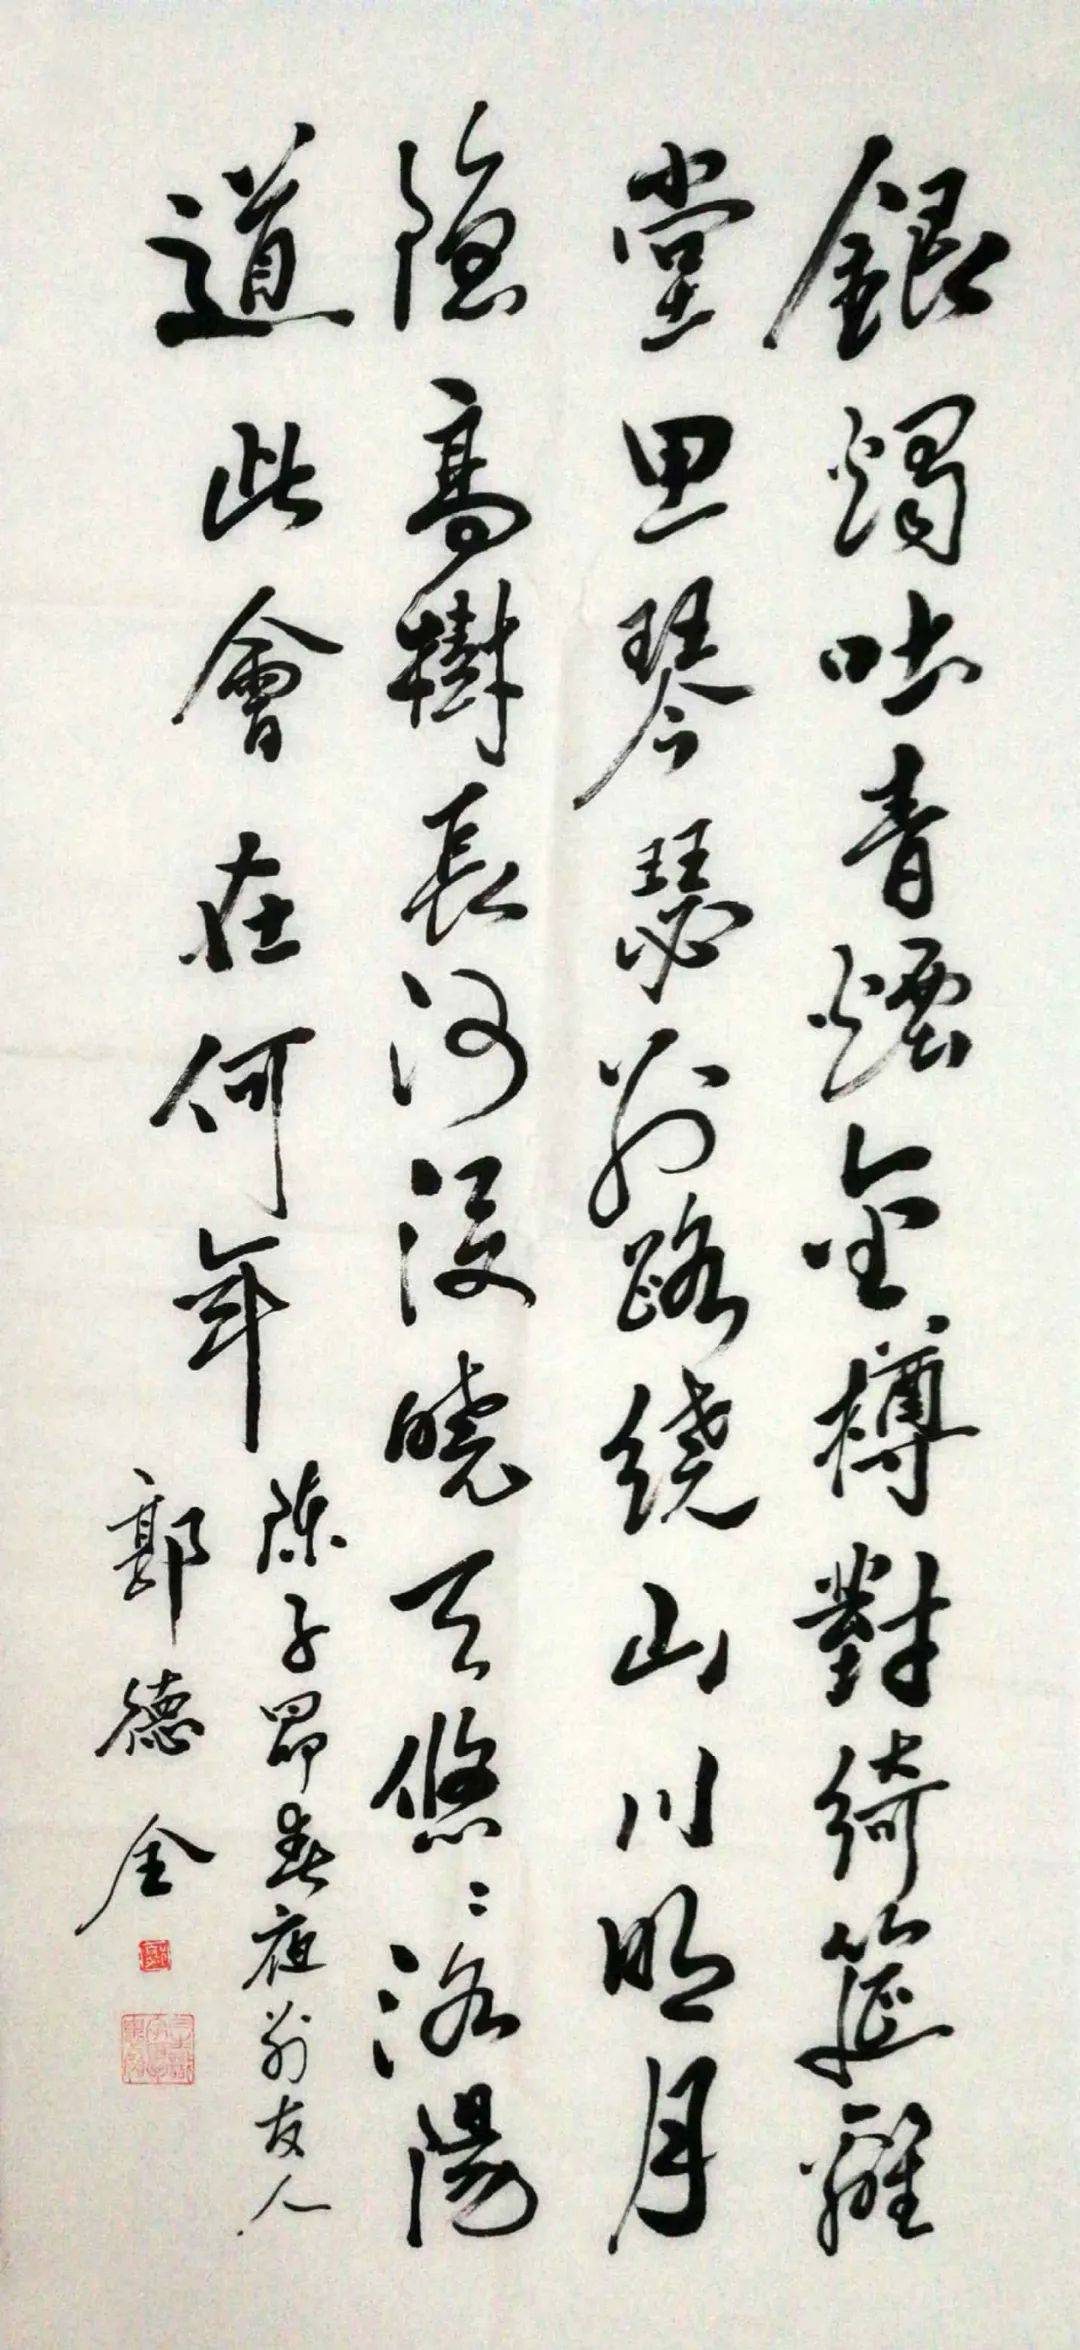 銀燭吐青煙金樽對綺筵離
堂思琴瑟別路繞山川明月
隱高樹長河沒曉天悠〻洛陽
道此會在何年
陳子昂春夜別友人
郭德全